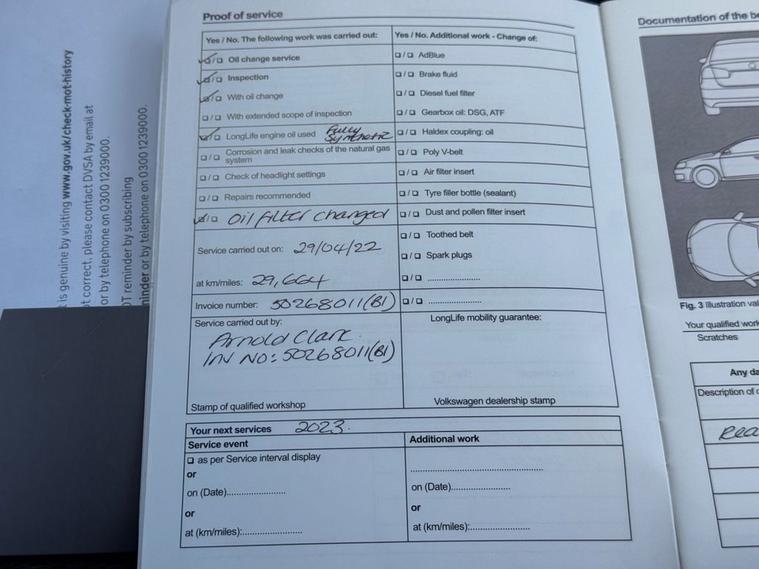 Proof of service
Yes / No. The following work was carried out:
☑/☐ Oil change service
☑/☐ Inspection
☑/☐ With oil change
☐/☐ With extended scope of inspection
☑/☐ LongLife engine oil used Fully Synthetic
☐/☐ Corrosion and leak checks of the natural gas
system
☐/☐ Check of headlight settings
☐/☐ Repairs recommended
☑/☐ Oil filter changed
Service carried out on: 29/04/22
at km/miles: 29,664
Invoice number: 50268011(B1)
Service carried out by:
Arnold Clark
Inv No: 50268011(B1)
Stamp of qualified workshop
Yes / No. Additional work - Change of:
☐/☐ AdBlue
☐/☐ Brake fluid
☐/☐ Diesel fuel filter
☐/☐ Gearbox oil: DSG, ATF
☐/☐ Haldex coupling: oil
☐/☐ Poly V-belt
☐/☐ Air filter insert
☐/☐ Tyre filler bottle (sealant)
☐/☐ Dust and pollen filter insert
☐/☐ Toothed belt
☐/☐ Spark plugs
☐/☐ ......................
☐/☐ ......................
LongLife mobility guarantee:
Volkswagen dealership stamp
Your next services 2023.
Service event
☐ as per Service interval display
or
on (Date)......................
or
at (km/miles):......................
Additional work
................................................
on (Date)......................
or
at (km/miles):......................
t is genuine by visiting www.gov.uk/check-mot-history
t correct, please contact DVSA by email at
or by telephone on 0300 1239000.
OT reminder by subscribing
minder or by telephone on 0300 1239000.
Documentation of the
Fig. 3 Illustration
Your qualified
Scratches
Any
Description of